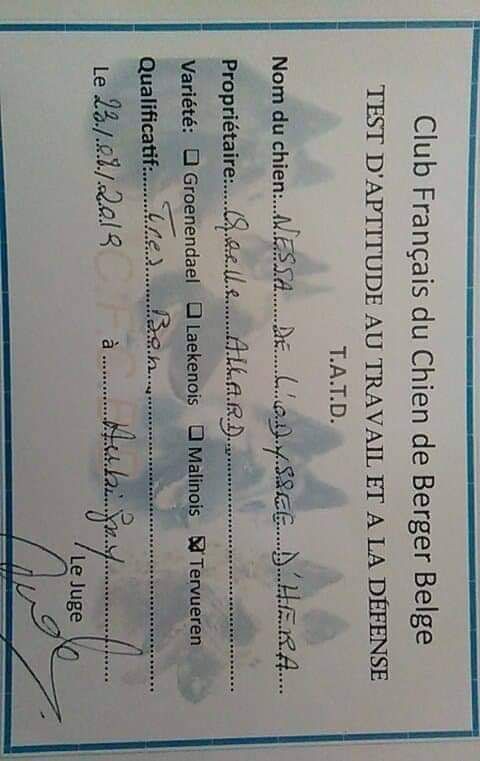 Club Français du Chien de Berger Belge
TEST D'APTITUDE AU TRAVAIL ET A LA DÉFENSE
T.A.T.D.
Nom du chien: NESSA DE L'ODYSSEE D'HERA
Propriétaire: ALLARD
Variété: Groenendael Laekenois Malinois Tervueren
Qualificatif: Tres Bon
Le à
Le Juge